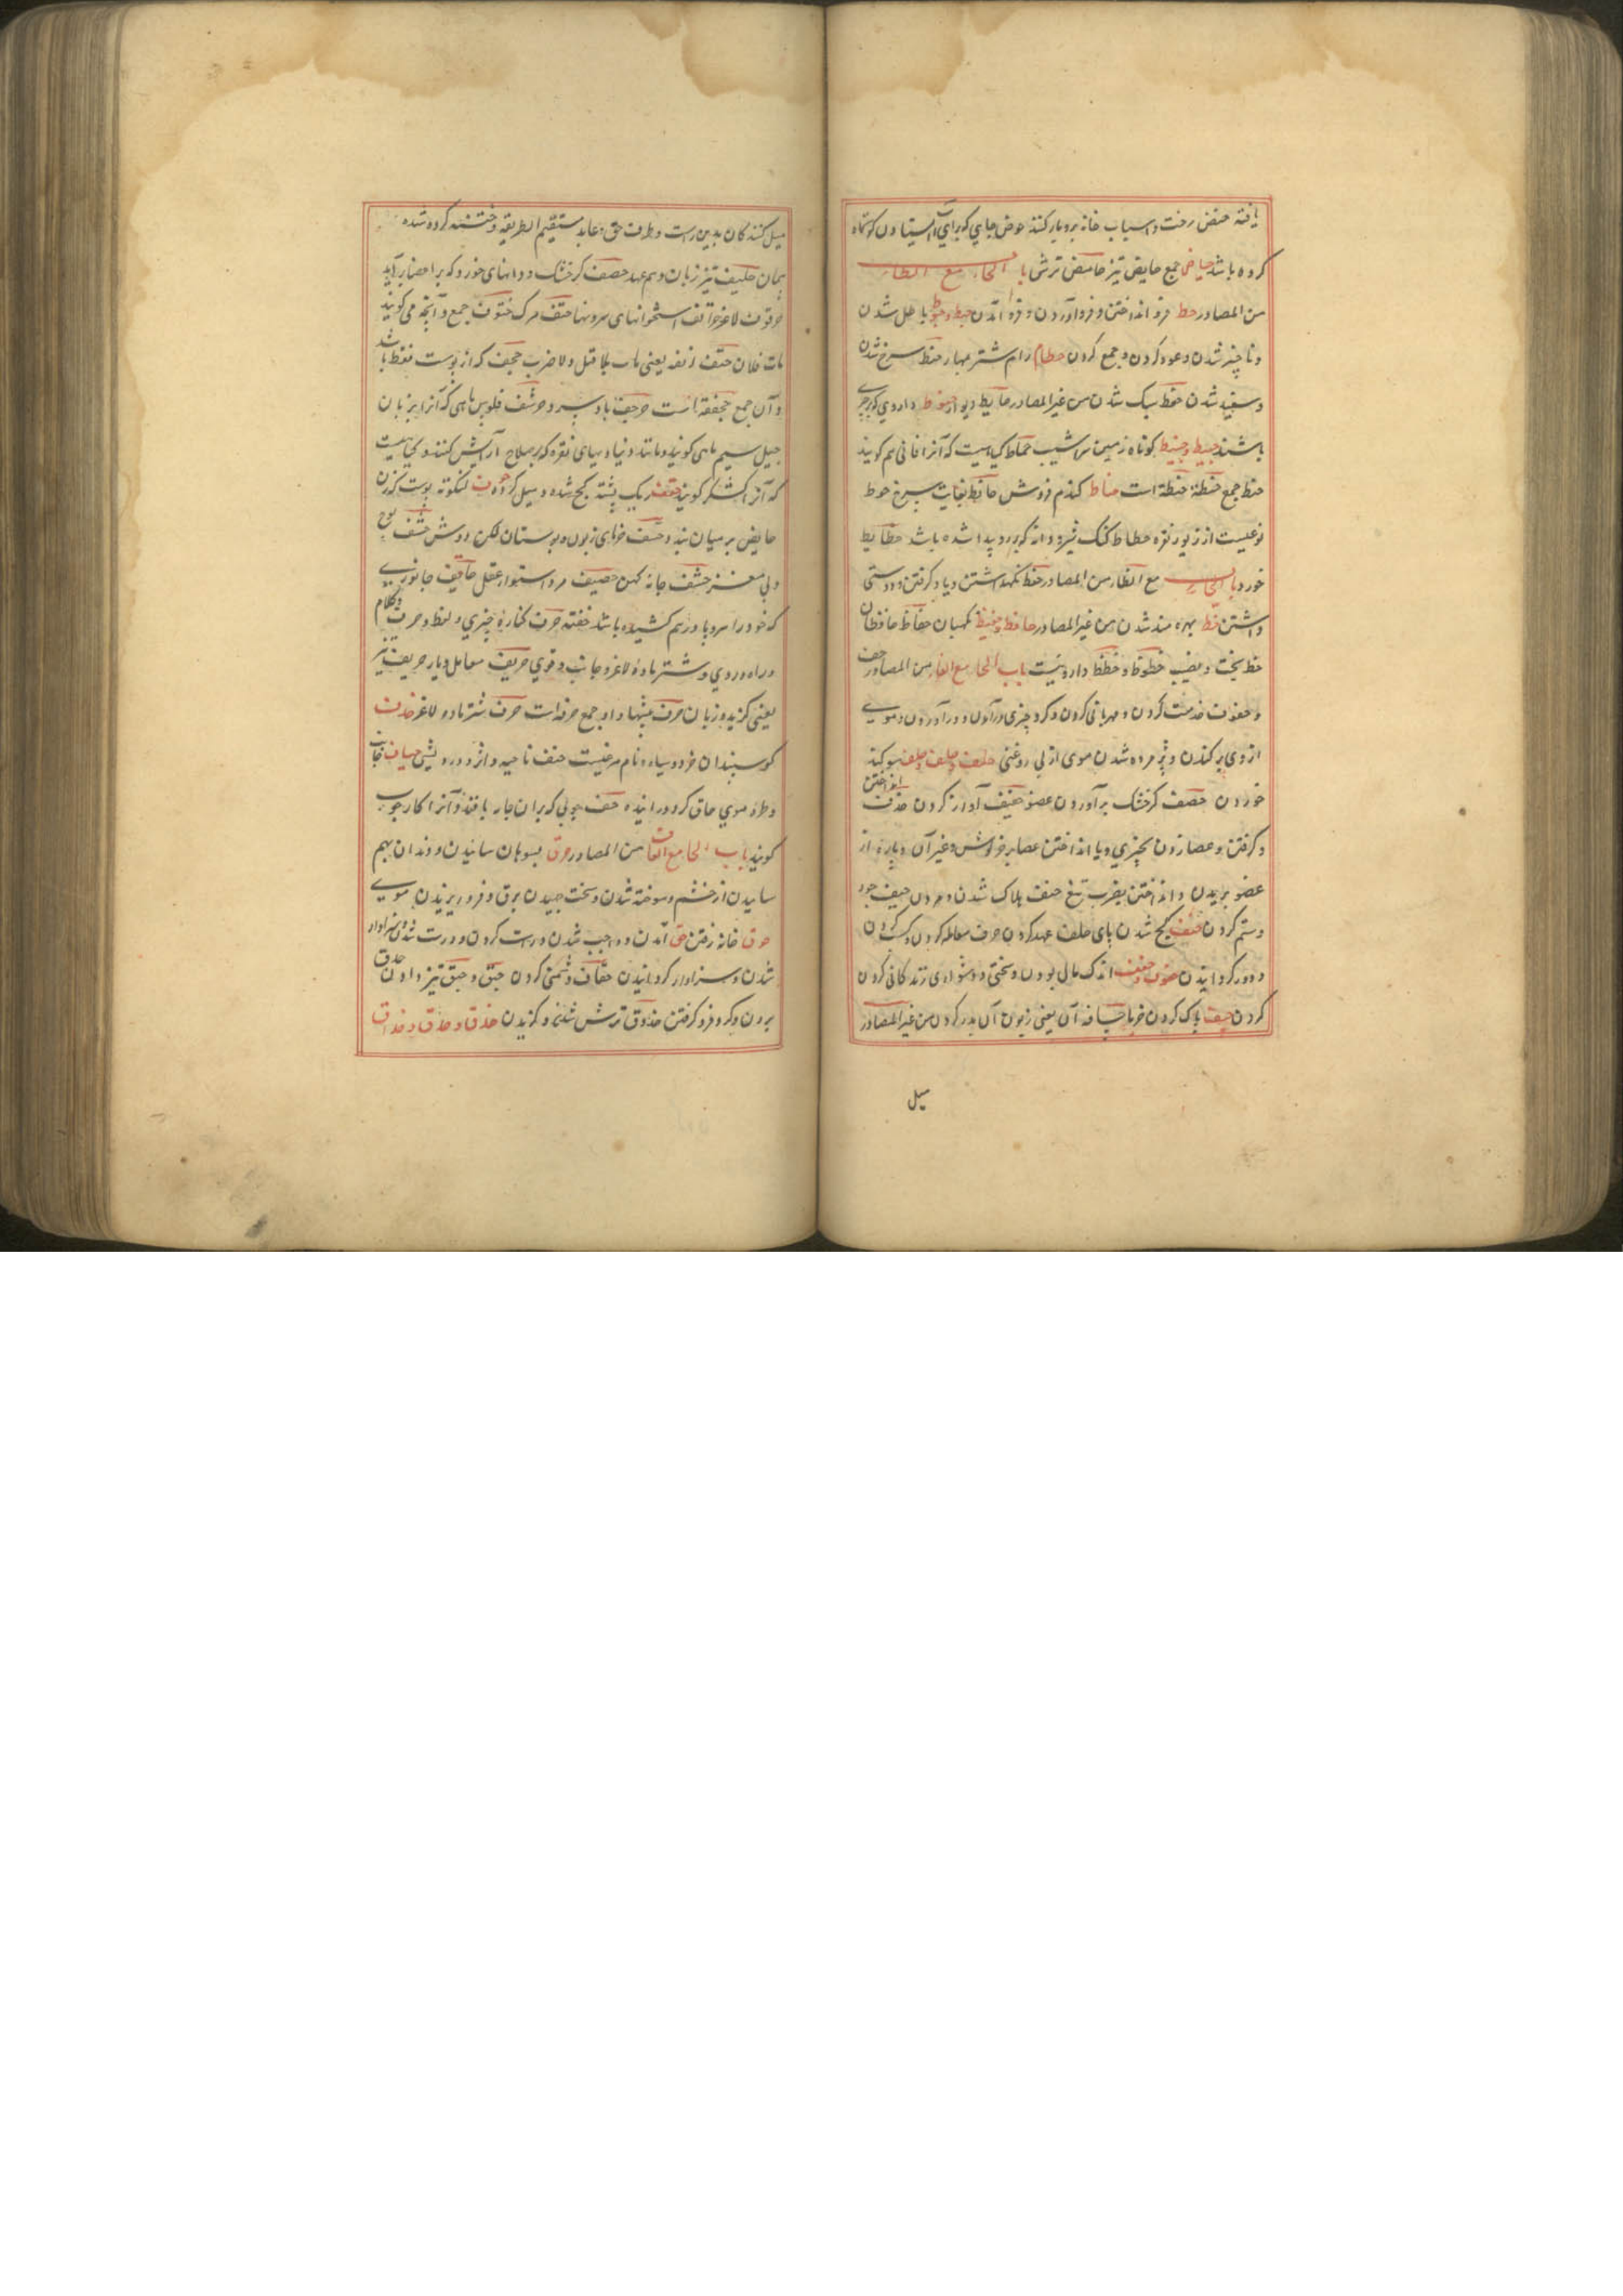 یافته حفض رخت و اسباب خانه بر و بار کنند حوض جایی که برای آب استادن کوتاه
کرده باشد حیاض جمع حایض نیز حامض ترشی باب الحاء مع الطاء
من المصادر حط فرو انداختن و فرود آوردن و فرو آمدن حبط و حبوط باطل شدن
و ناچیز شدن و عود کردن و جمع کردن حطام رام شتر مهار حنط سرخ شدن
و سفید شدن حطط سبک شدن من غیر المصادر حایط دیوار حنوط داروی که بر
باشند کوتاه زمین شیب حماط کیاهیست که آنرا افانی هم کویند
حنط جمع حنطة حنطة است حناط کندم فروش حانط بغایت سرخ حوط
نوعیست از زیور نقره حطاط کنک شیر و دانه که بر رو پیدا شده باشد حطایط
خورد باب الحاء مع الظاء من المصادر حفظ نکهداشتن و یاد کرفتن و دوستی
داشتن حظ بهره مند شدن من غیر المصادر حافظ و حفیظ نکهبان حفاظ حافظان
حظ بخت و نصیب حظوظ و حظظ داروئیست باب الحاء مع الفاء من المصادر حف
و حفوف خدمت کردن و مهربانی کردن و کرد چیزی درآمدن و درآوردن و موی
از روی برکندن و پژمرده شدن موی از بی روغنی حلف و حلف و حلف سوکند
خوردن حصف کر خشک برآوردن عضو حفیف آواز کردن حذف انداختن
و کرفتن و عصا زدن بچیزی و یا انداختن عصا بر خرکوش و غیر آن و پاره از
عضو بریدن و انداختن بضرب تیغ حتف هلاک شدن و مردن حیف جور
و ستم کردن حنف کج شدن پای حلف عهد کردن حرف معامله کردن و کسب کردن
و دور کردانیدن حفوف و حفف اندک مال بودن و سختی و دشواری زندکانی کردن
کردن پاک کردن خرما حسافه آن یعنی زبون آن بدر کردن من غیر المصادر
میل
میل کنندکان بدین راست و طرف حق عابد مستقیم الطریقه و ختنه کرده شده
پیمان حلیف تیز زبان و هم عهد حصف کر خشک و دانهای خورد که بر اعضا برآید
حرقوف لاغر حراقف استخوانهای سرونها حتف مرک حتوف جمع و آنچه می کویند
مات فلان حتف انفه یعنی مات بلا قتل و لا ضرب حجف که از پوست فقط باشد
و آن جمع حجفة است حرجف باد سرد حرشف فلوس ماهی که آنرا بزبان
جیل سیم ماهی کویند و مانند دنیا و بهای نقره که بر سلاح آرایش کنند و کیاهیست
که آنرا کنکر کویند حقف ریک پشته کج شده و میل کرده حوف لنکوته پوست که زن
حایض بر میان بندد حشف خرمای زبون و پستان خشک
و بی مغز حشف جامه کهن حصیف مرد استوار عقل حاقف جانوری
که خود را سر و پا درهم کشیده باشد خفته حرف کناره چیزی و لفظ و حرف و کلام
و راه و روی و شتر ماده لاغر و جانب و قوی حریف معامل و یار حریف تیز
یعنی کزیده زبان حرف پیشها و او جمع حرفه است حرف شتر ماده لاغر حذف
کوسپندان خرد و سیاه و نام مرغیست حنف ناحیه و اثر و درویش حیاف جانب
و طرف موی ماق کرد و رانیده حف چوبی که بر آن جامه بافند و آنرا کارچوب
کویند باب الحاء مع القاف من المصادر حرق بسوهان ساییدن و دندان بهم
ساییدن از خشم و سوخته شدن و سخت جهیدن برق و فرو ریزیدن موی
حوق خانه رفتن حق آمدن و واجب شدن و راست کردن و درست شدن و سزاوار
شدن و سزاوار کردانیدن حقاق دشمنی کردن حبق و حبق تیز دادن حدق
بردن و کرد فرو کرفتن حذوق ترش شدن و کزیدن حذق و حذق و حذاق